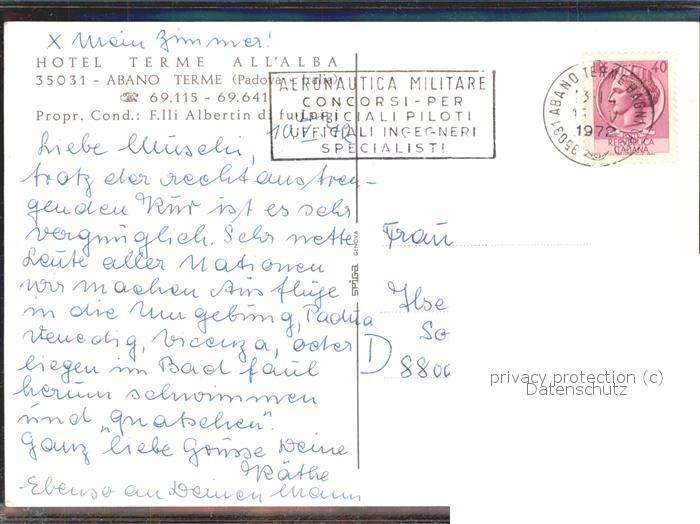 X Mein Zimmer!
HOTEL TERME ALL'ALBA
35031 - ABANO TERME (Padova - Italia)
☎ 69.115 - 69.641
Propr. Cond.: F.lli Albertin di fu Luigi
AERONAUTICA MILITARE
CONCORSI - PER
UFFICIALI PILOTI
UFFICIALI INGEGNERI
SPECIALISTI
35031 ABANO TERME BAGNI
1972
40
REPUBBLICA
ITALIANA
Liebe Muschi,
trotz der recht anstren-
genden Kur ist es sehr
vergnüglich. Sehr nette
Leute aller Nationen
wir machen Ausflüge
in die Umgebung, Padua
Venedig, Vicenza, oder
liegen im Bad faul
herum schwimmen
und „quatschen".
Ganz liebe Grüsse Deine
Käthe
Ebenso an Deinen Mann
SPIGA GENOVA
Frau
Ilse
So
D 8800
privacy protection (c)
Datenschutz